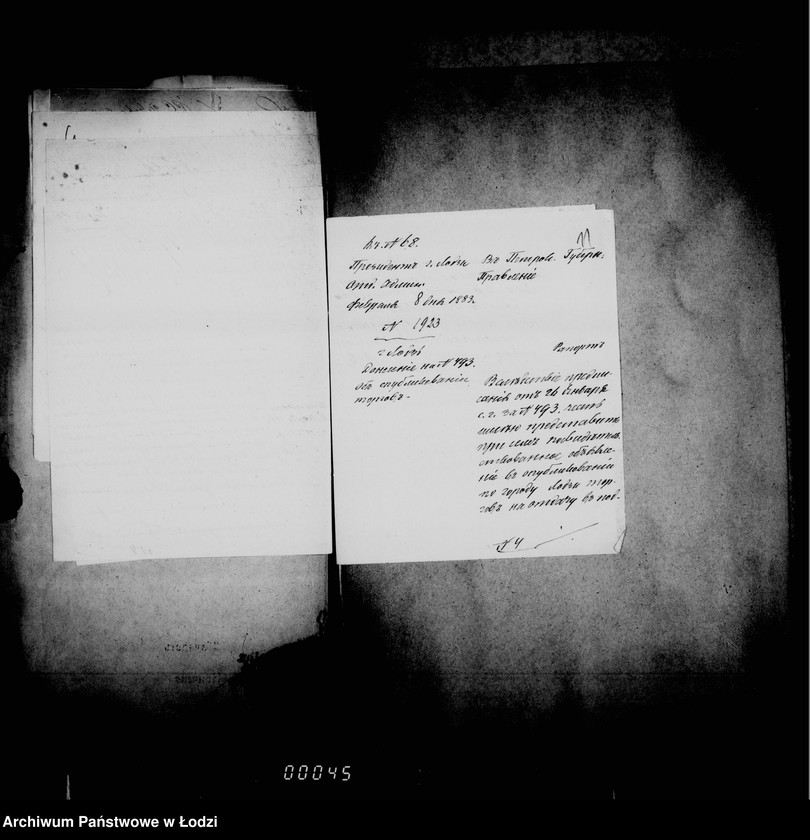 Вх. № 68.
Президентъ г. Лодзи
Отд. Админ.
Февраля 8 дня 1883.
№ 1923
г. Лодзь
Донесеніе на № 493.
объ опубликованіи
торговъ.-
11
Въ Петров. Губерн.
Правленіе
Рапортъ
Вслѣдствіе предпи-
санія отъ 26 Января
с. г. за № 493. честь
имѣю представить
при семъ
объявле-
ніе въ опубликованіи
по городу Лодзи тор-
говъ на отдачу въ под-
№ 4
00045
Archiwum Państwowe w Łodzi